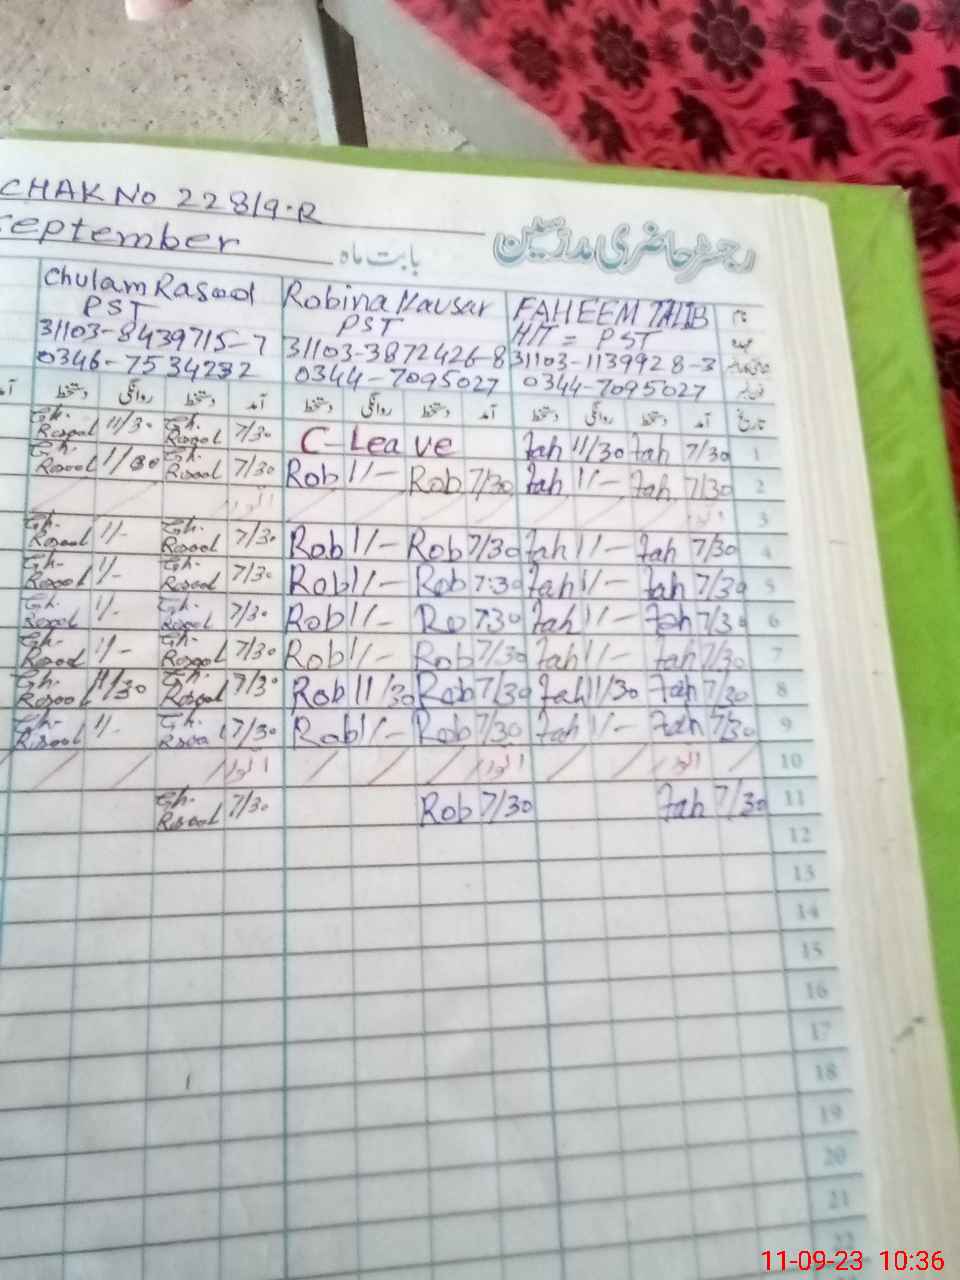 CHAK No 228/9-R
September بابت ماہ رجسٹر حاضری مدرسین
Ghulam Rasool Robina Kausar FAHEEM TALIB نام
PST PST H/T = PST عہدہ
31103-8439715-7 31103-3872426-8 31103-1139928-3
0346-7534232 0344-7095027 0344-7095027
دستخط روانگی دستخط آمد دستخط روانگی دستخط آمد دستخط روانگی دستخط آمد تاریخ
Gh. Rasool 11/30 Gh. Rasool 7/30 C-Leave Fah 11/30 Fah 7/30 1
Gh. Rasool 11/30 Gh. Rasool 7/30 Rob 11/- Rob 7/30 Fah 11/- Fah 7/30 2
اتوار اتوار 3
Gh. Rasool 11/- Gh. Rasool 7/30 Rob 11/- Rob 7/30 Fah 11/- Fah 7/30 4
Gh. Rasool 11/- Gh. Rasool 7/30 Rob 11/- Rob 7:30 Fah 11/- Fah 7/30 5
Gh. Rasool 11/- Gh. Rasool 7/30 Rob 11/- Ro 7:30 Fah 11/- Fah 7/30 6
Gh. Rasool 11/- Gh. Rasool 7/30 Rob 11/- Rob 7/30 Fah 11/- Fah 7/30 7
Gh. Rasool 11/30 Gh. Rasool 7/30 Rob 11/30 Rob 7/30 Fah 11/30 Fah 7/30 8
Gh. Rasool 11/- Gh. Rasool 7/30 Rob 11/- Rob 7/30 Fah 11/- Fah 7/30 9
اتوار اتوار اتوار 10
Gh. Rasool 7/30 Rob 7/30 Fah 7/30 11
12
13
14
15
16
17
18
19
20
21
22
11-09-23 10:36